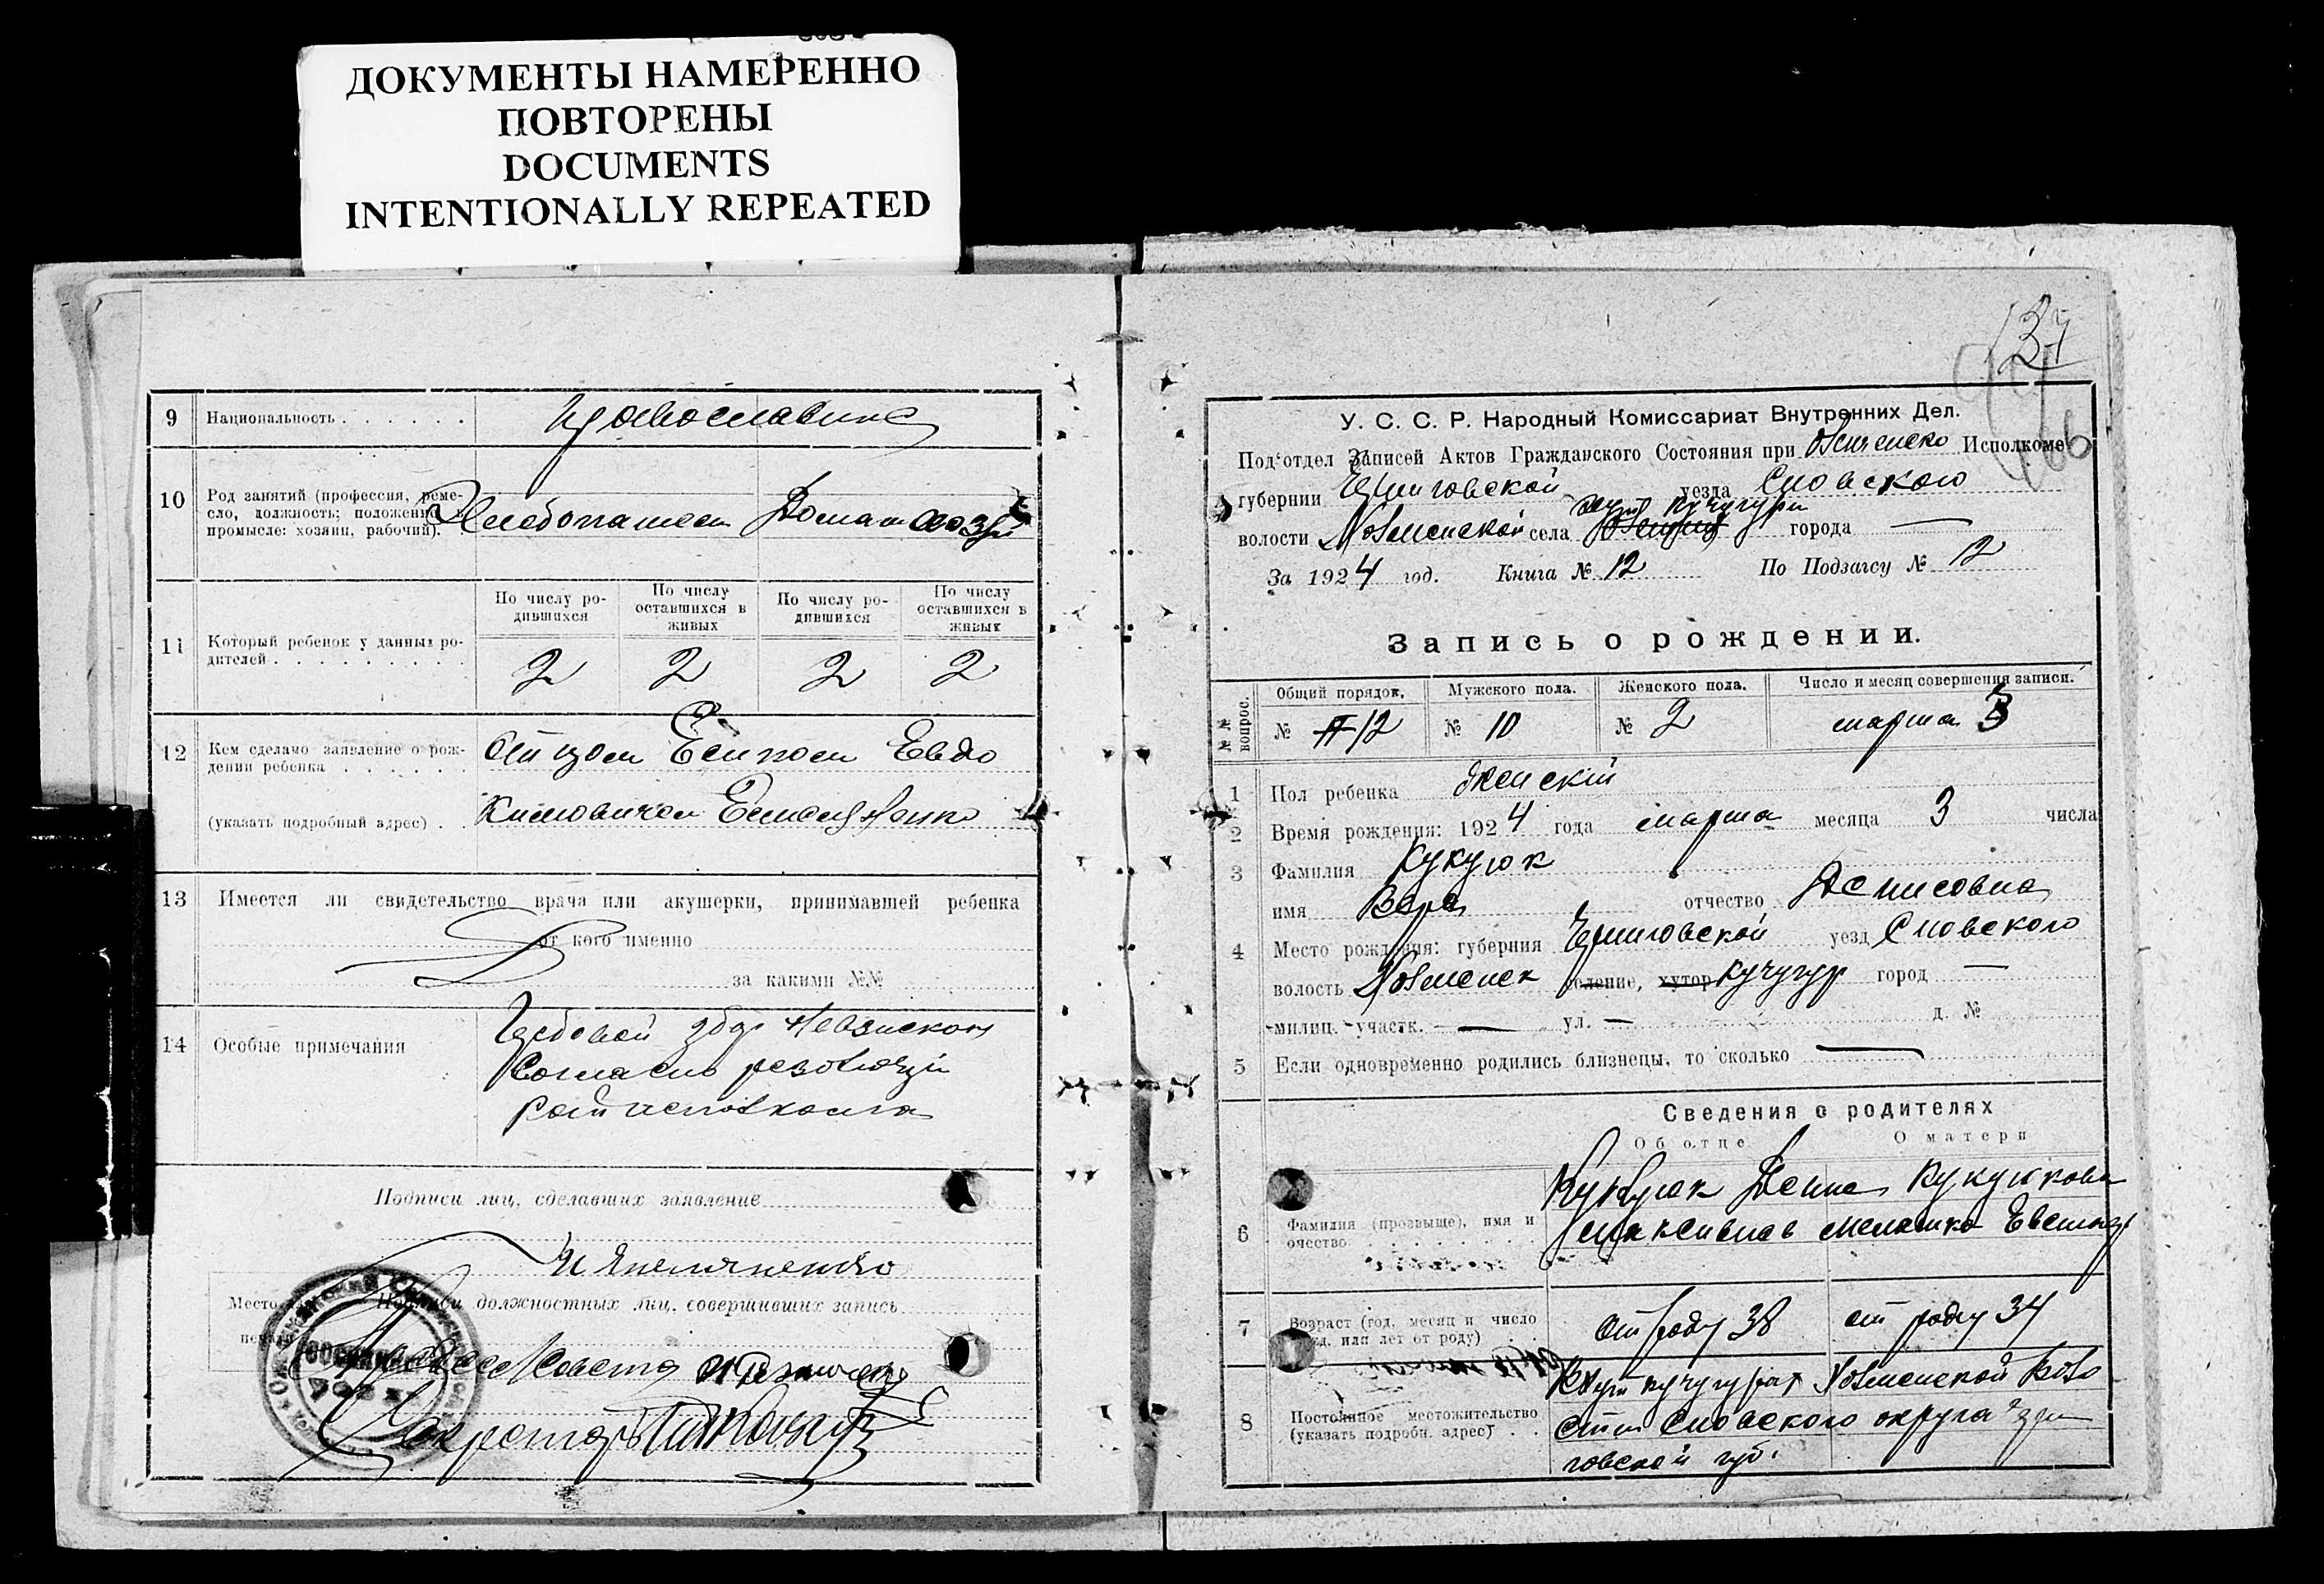 ДОКУМЕНТЫ НАМЕРЕННО
ПОВТОРЕНЫ
DOCUMENTS
INTENTIONALLY REPEATED
9 Национальность православние
10 Род занятий (профессия, реме-
сло, должность; положение в
промысле: хозяин, рабочий). Хлебопашест Домаш хозяй
По числу ро-
дившихся
По числу
оставшихся в
живых
По числу ро-
дившихся
По числу
оставшихся в
живых
11 Который ребенок у данных ро-
дителей
2 2 2 2
12 Кем сделано заявление о рож-
дении ребенка Отцом Евдо
(указать подробный адрес) кимовичем
13 Имеется ли свидетельство врача или акушерки, принимавшей ребенка
от кого именно
за какими №№
14 Особые примечания Гербовой збор
Согласно резолюци
исполкома
Подписи лиц, сделавших заявление
Место
печати
Подписи должностных лиц, совершивших запись
Секретарь
137
66
У. С. С. Р. Народный Комиссариат Внутренних Дел.
Под'отдел Записей Актов Гражданского Состояния при Исполкоме
губернии Черниговской уезда Сновского
хут Кучугури
волости Холменской села города —
За 1924 год. Книга № 12 По Подзагсу № 12
Запись о рождении.
№№ вопрос. Общий порядок. Мужского пола. Женского пола. Число и месяц совершения записи.
№ 12 № 10 № 2 марта 3
1 Пол ребенка женский
2 Время рождения: 1924 года марта месяца 3 числа
3 Фамилия Кукуюк
имя Вера отчество Денисовна
4 Место рождения: губерния Черниговской уезд Сновского
волость Холменск селение, хутор Кучугур город —
милиц. участк. — ул. — д. №
5 Если одновременно родились близнецы, то сколько —
Сведения о родителях
Об отце О матери
6 Фамилия (прозвище), имя и
очество
Кукуюк Денис Кукуюкова
Максимов Мелашка
7 Возраст (год, месяц и число
рожд. или лет от роду) от роду 38 от роду 34
8 Постоянное местожительство
(указать подробн. адрес)
Хут Кучугурах Холменской воло
сти Сновского округа Черни
говской губ.